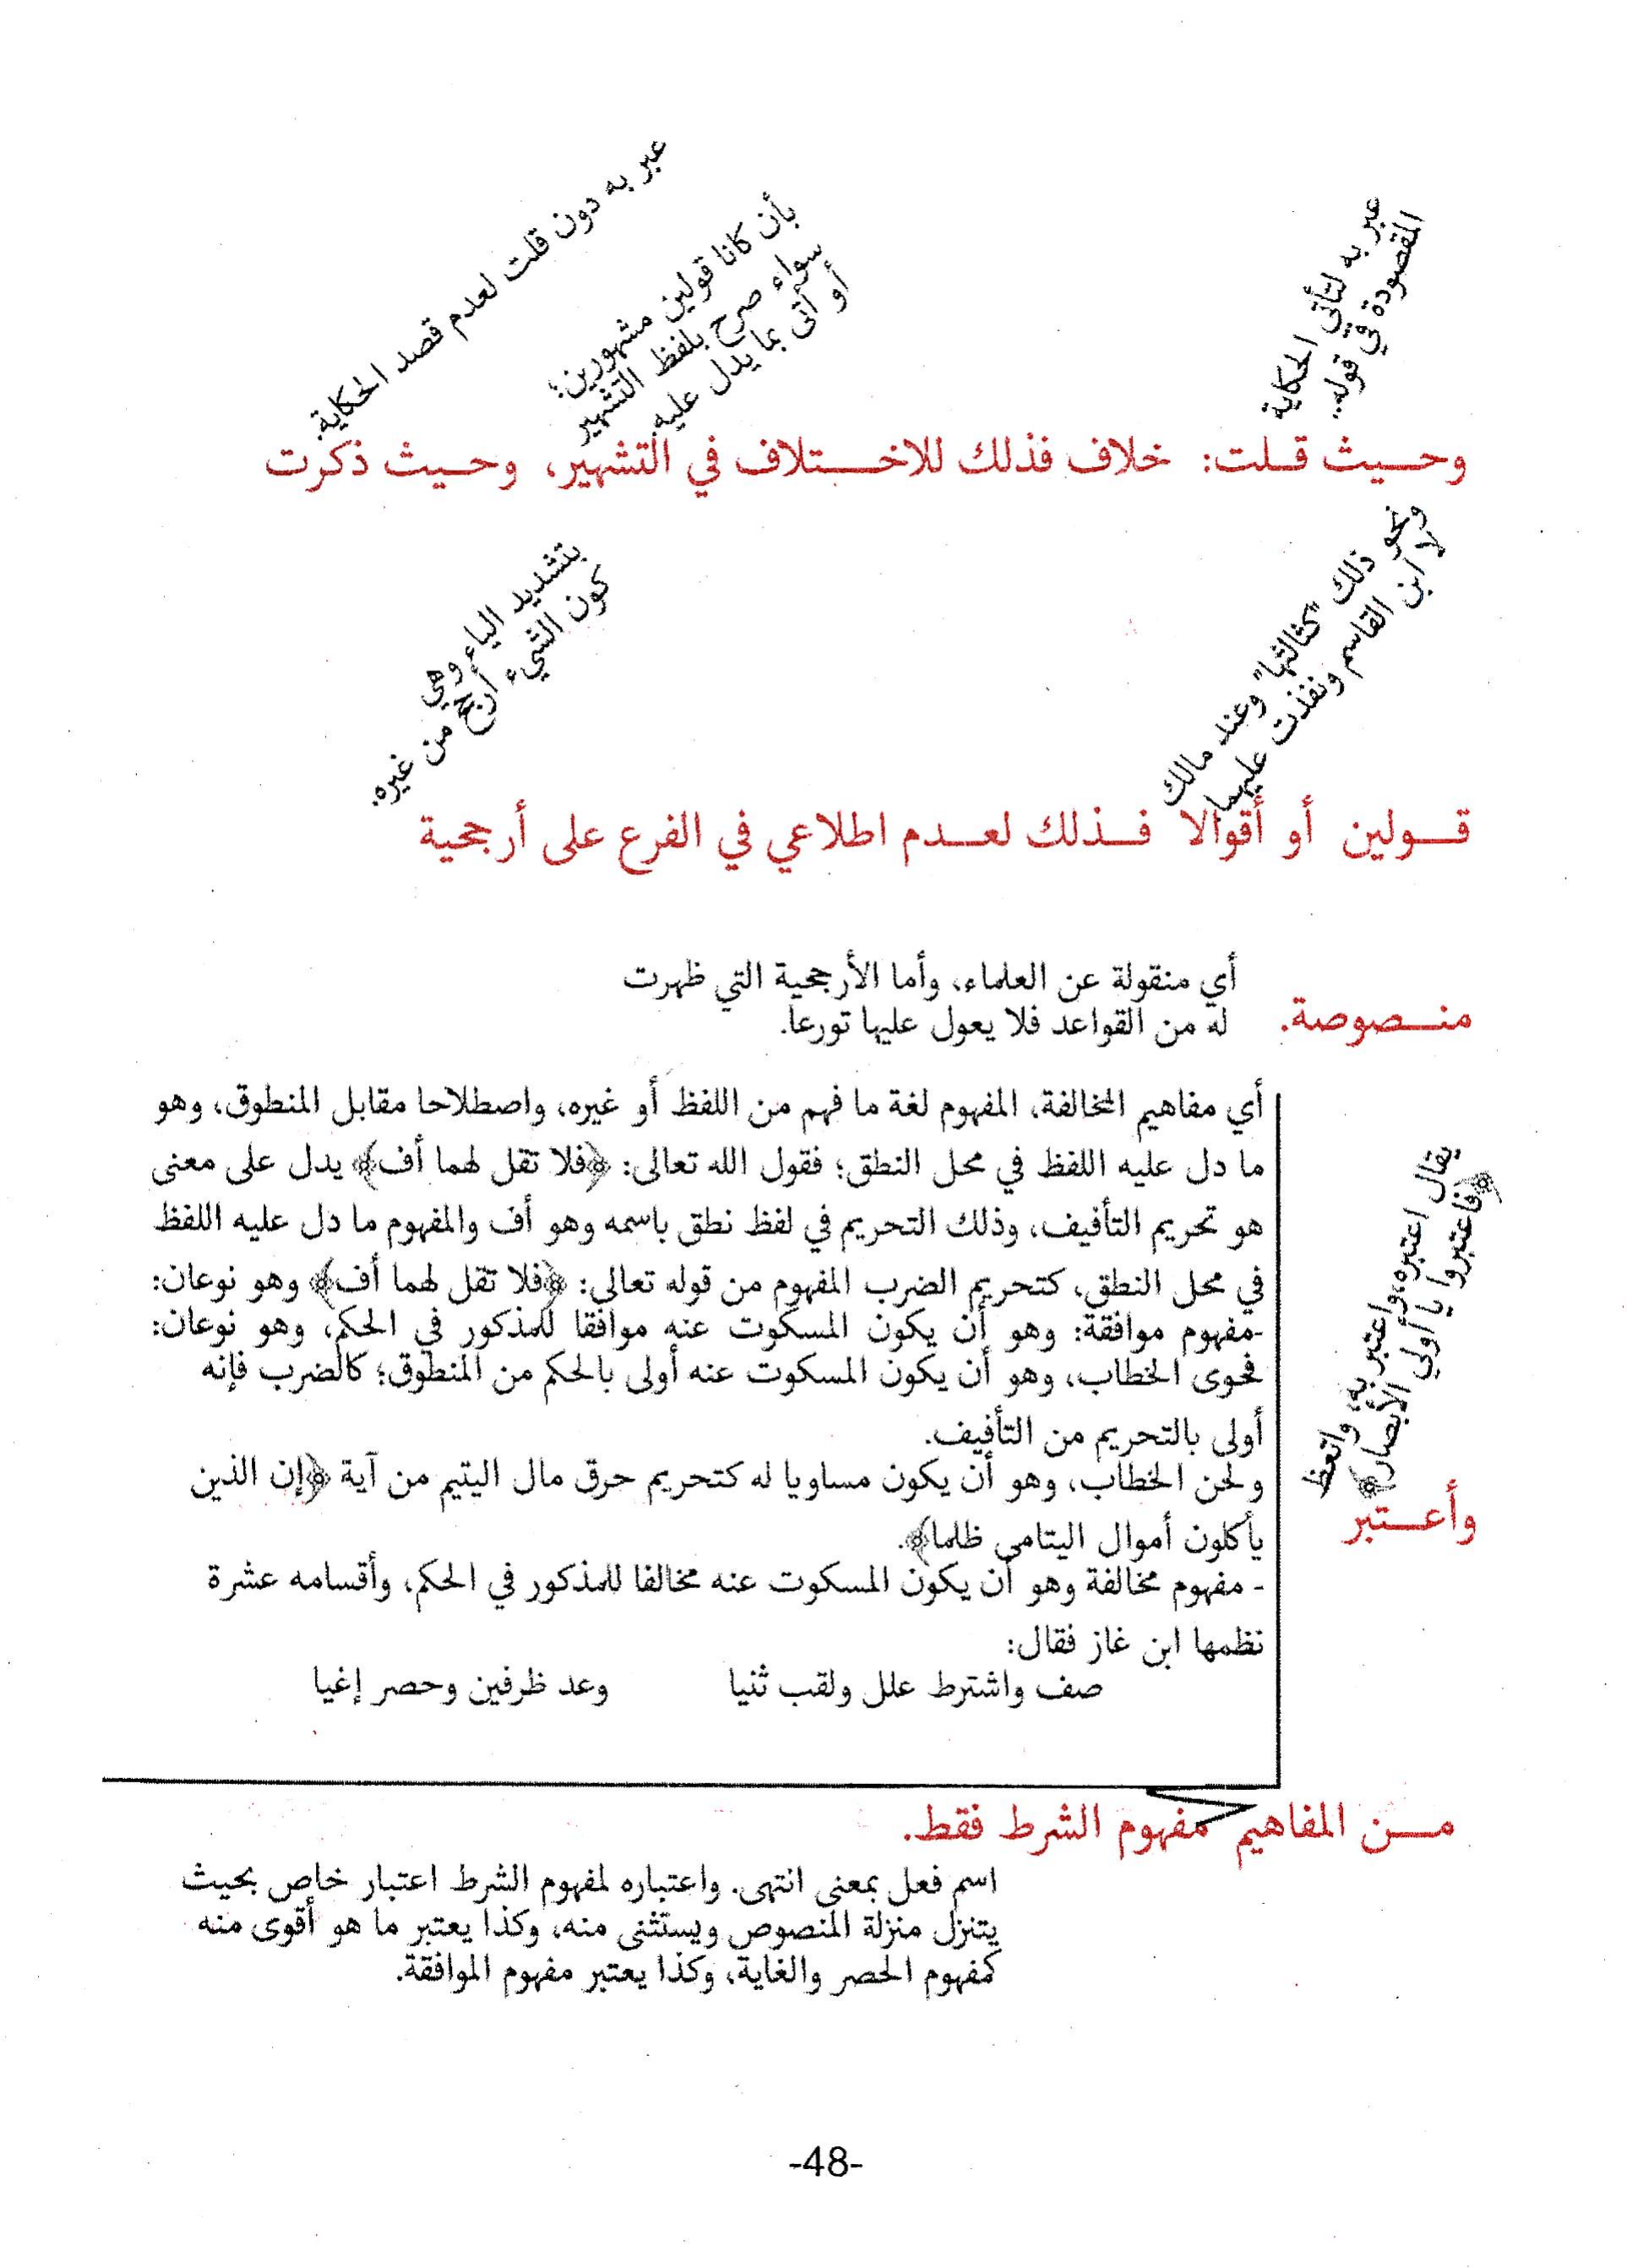 عبر به دون قلت لعدم قصد الحكاية.
بأن كانا قولين مشهورين؛
سواء صرح بلفظ التشهير
أو أتى بما يدل عليه.
عبر به لتأتي الحكاية
المقصودة في قوله..
وحيث قلت: خلاف فذلك للاختلاف في التشهير، وحيث ذكرت
ونحو ذلك "كثالثها" وعند مالك
لا ابن القاسم ونفذت عليهما
بتشديد الياء وهي
كون الشيء أرجح من غيره.
قولين أو أقوالا فذلك لعدم اطلاعي في الفرع على أرجحية
أي منقولة عن العلماء، وأما الأرجحية التي ظهرت
له من القواعد فلا يعول عليها تورعا.
منصوصة.
أي مفاهيم المخالفة، المفهوم لغة ما فهم من اللفظ أو غيره، واصطلاحا مقابل المنطوق، وهو
ما دل عليه اللفظ في محل النطق؛ فقول الله تعالى: ﴿فلا تقل لهما أف﴾ يدل على معنى
هو تحريم التأفيف، وذلك التحريم في لفظ نطق باسمه وهو أف والمفهوم ما دل عليه اللفظ
في محل النطق، كتحريم الضرب المفهوم من قوله تعالى: ﴿فلا تقل لهما أف﴾ وهو نوعان:
-مفهوم موافقة: وهو أن يكون المسكوت عنه موافقا للمذكور في الحكم، وهو نوعان:
فحوى الخطاب، وهو أن يكون المسكوت عنه أولى بالحكم من المنطوق؛ كالضرب فإنه
أولى بالتحريم من التأفيف.
ولحن الخطاب، وهو أن يكون مساويا له كتحريم حرق مال اليتيم من آية ﴿إن الذين
يأكلون أموال اليتامى ظلما﴾.
- مفهوم مخالفة وهو أن يكون المسكوت عنه مخالفا للمذكور في الحكم، وأقسامه عشرة
نظمها ابن غاز فقال:
صف واشترط علل ولقب ثنيا وعد ظرفين وحصر إغيا
يقال اعتبره، واعتبر به، واتعظ
﴿فاعتبروا يا أولي الأبصار﴾
وأعتبر
من المفاهيم مفهوم الشرط فقط.
اسم فعل بمعنى انتهى. واعتباره لمفهوم الشرط اعتبار خاص بحيث
يتنزل منزلة المنصوص ويستثنى منه، وكذا يعتبر ما هو أقوى منه
كمفهوم الحصر والغاية، وكذا يعتبر مفهوم الموافقة.
-48-